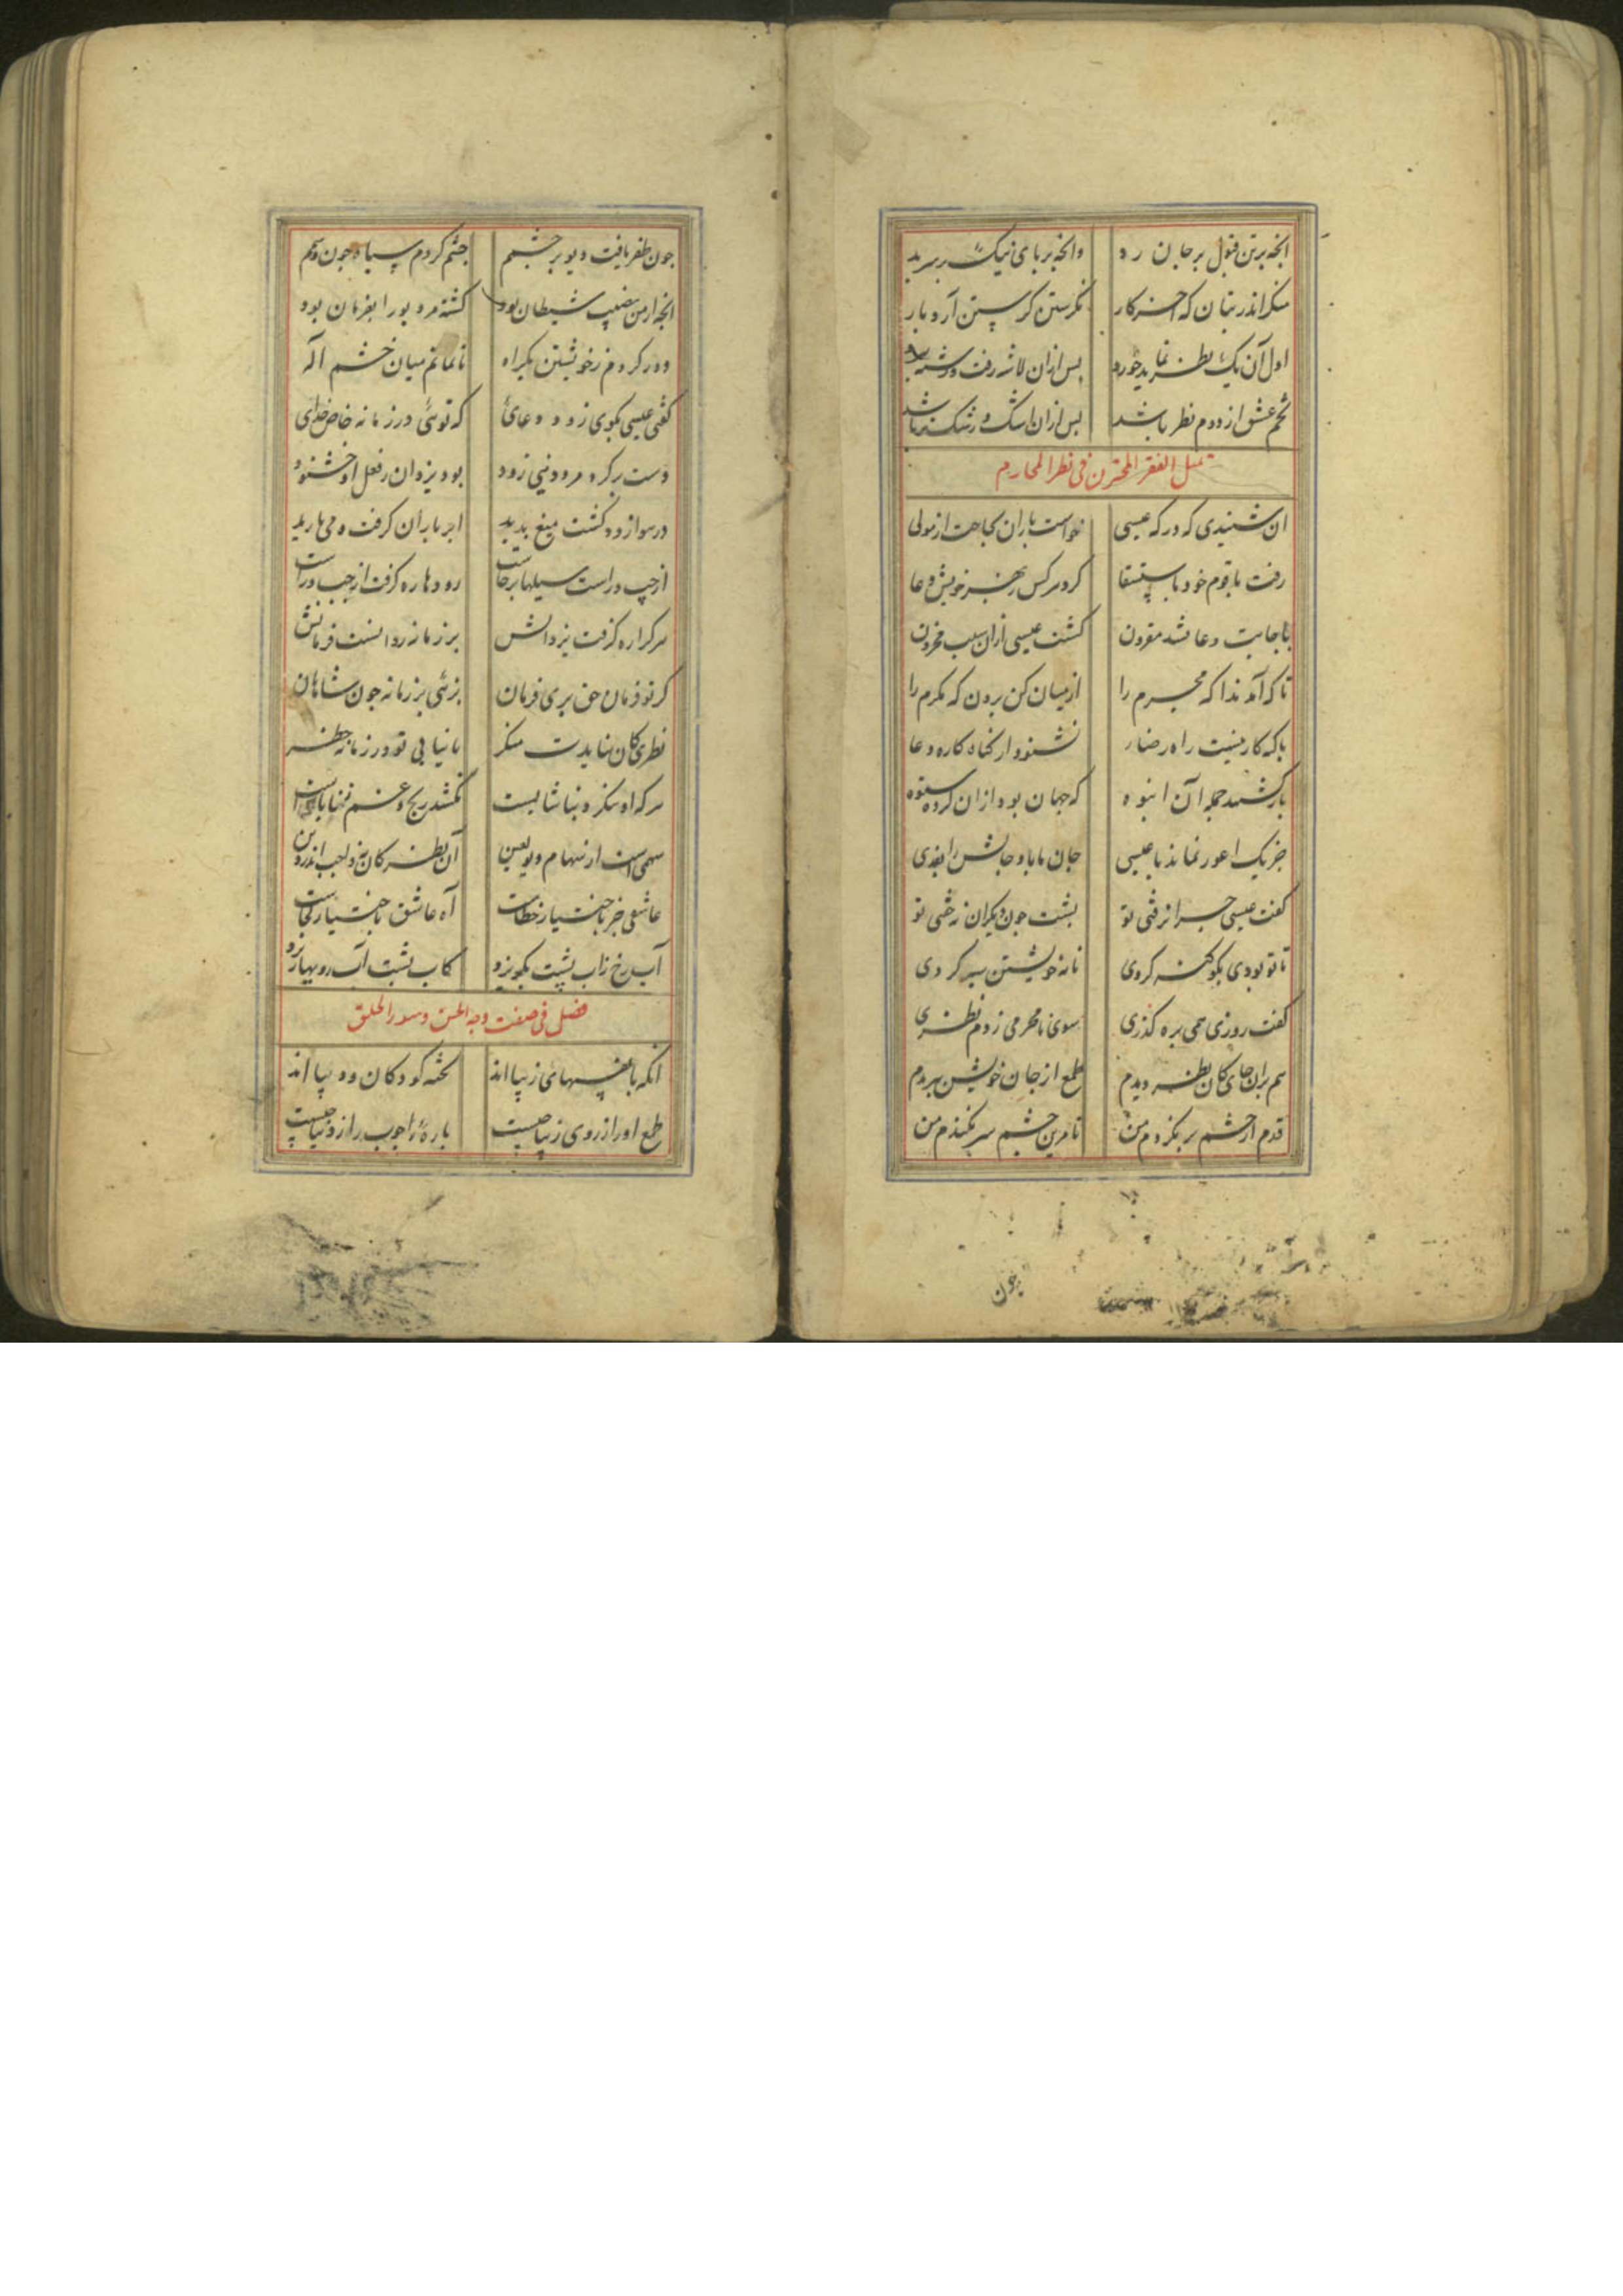 انجه برتن قبول بر جان رد وانجه بر پای نیک بر سر بد
منکر اندر بتان که اخر کار نکرستن کرستن آرد بار
اول آن یک نظر نماید خورد پس ازان لاشه رفت و رشته
تخم عشق از دوم نظر باشد پس ازان اشک و رشک باشد
تمثیل الفقر المحترن فی نظر المحارم
ان شنیدی که در که عیسی خواست باران بحاجت از مولی
رفت با قوم خود باستسقا کرد هر کس ز بهر خویش دعا
باجابت دعا نشد مقرون کشت عیسی ازان سبب محزون
تا که آمد ندا که مجرم را از میان کن برون که مکرم را
با که کار نیست راه رضا نشنود از کناه کاره دعا
باز کشتند جمله آن انبوه که جهان بود ازان کرده ستوه
جز یک اعور نماند با عیسی جان ما باد جانش را بفدی
کفت عیسی چرا نرفتی تو بشت جون دیکران نه خفتی تو
تا تو بودی بکو کنه کردی نامه خویشتن سیه کردی
کفت روزی همی بره کذری سوی نامحرمی زدم نظری
هم بران جای کان نظر دیدم طمع از جان خویشتن ببریدم
قدم از خشم بر نکردم من تا مرین چشم سر بکندم من
جون
جون ظفر یافت دیو بر چشمم چشم کردم سیاه جون
انجه از من نصیب شیطان بود کشته مر دیو را بفرمان بود
دور کردم ز خویشتن یکراه تا نمانم میان خشم اله
کفت عیسی بکوی زود دعای که توئی در زمانه خاص خدای
دست بر کرد مرد دینی زود بود یزدان ز فعل او خشنود
در هوا زود کشت میغ بدید ابر باران کرفت و می بارید
از چپ و راست سیلها برخاست رودها ره کرفت از چپ و راست
هر که راه کرفت یزدانش بر زمانه روانست فرمانش
کر تو فرمان حق بری فرمان بزئی بر زمانه جون شاهان
نظری کان نبایدت منکر تا نیابی تو در زمانه خطر
هر که او ننکرد بناشایست نکشد رنج و غم
سهمی است از سهام دیو لعین آن نظر کان بود
عاشقی جز باختیار خطاست آه عاشق باختیار کجاست
آب رخ زاب پشت بکریزد کاب پشت آب رو بها ریزد
فصل فی صفت وجه الحسن وسوء الخلق
انکه با نفسهای زیبا اند تخته کودکان و دیبا اند
طمع او را از روی زیبا چیست باره را جوب راز دیبا چیست